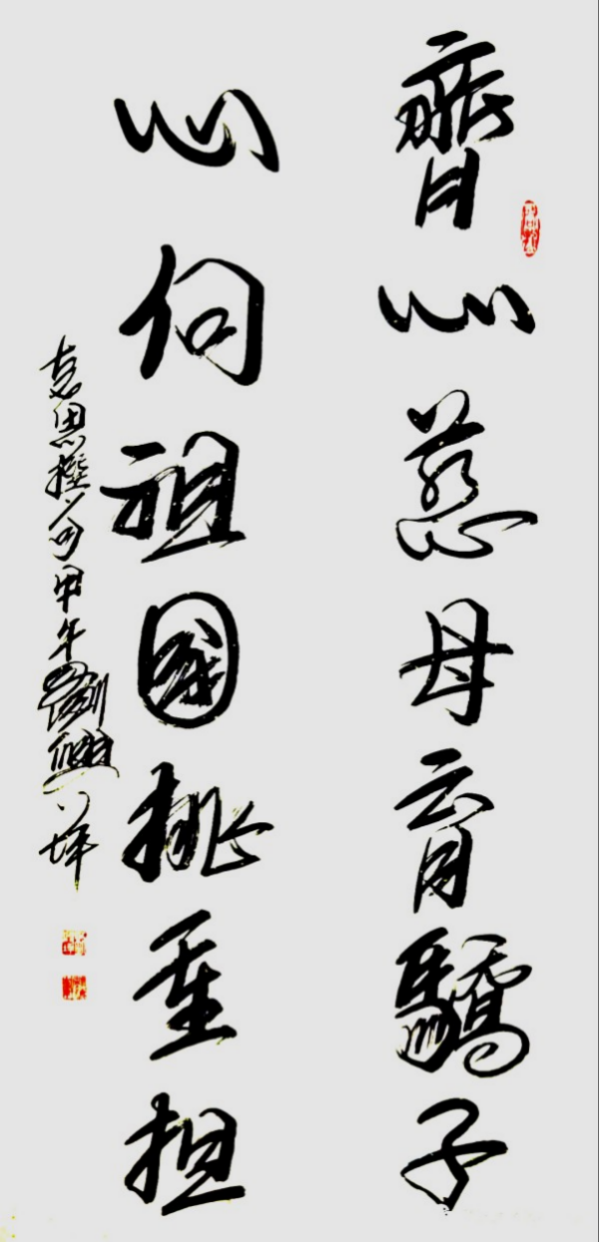 齊心慈母育驕子
心向祖國挑重担
思撰句甲午劉